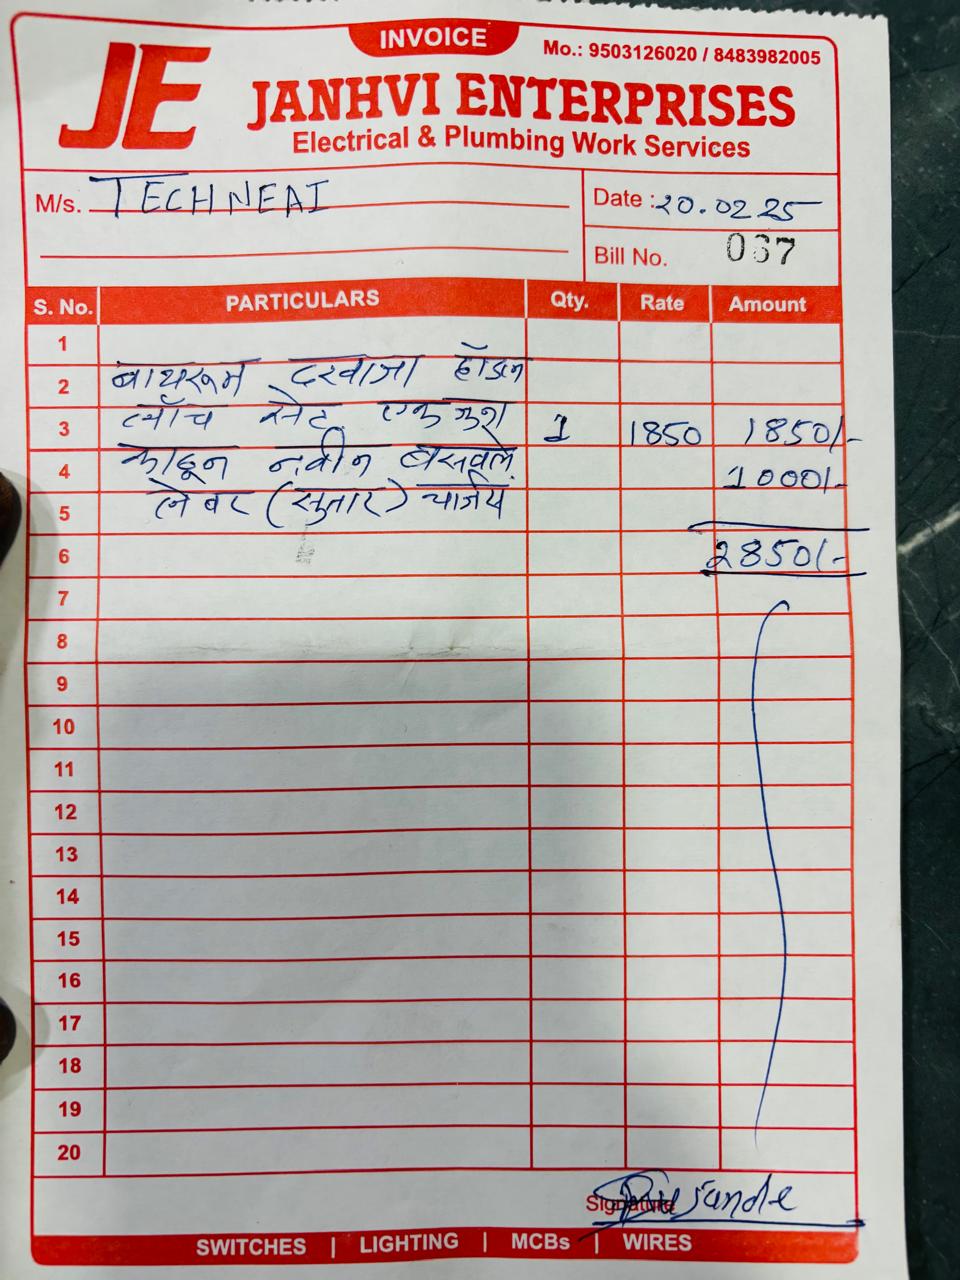 INVOICE
Mo.: 9503126020 / 8483982005
JE
JANHVI ENTERPRISES
Electrical & Plumbing Work Services
M/s. TECHNEAI
Date : 20.02.25
Bill No. 037
S. No. PARTICULARS Qty. Rate Amount
1
2 बाथरूम दरवाजा हॅाडल
3 लॉच सेट 1 1850 1850/-
4 काढून नवीन बसवले. 1000/-
5 लेबर (सुतार) चार्जेस
6 2850/-
7
8
9
10
11
12
13
14
15
16
17
18
19
20
Signature
SWITCHES | LIGHTING | MCBs | WIRES